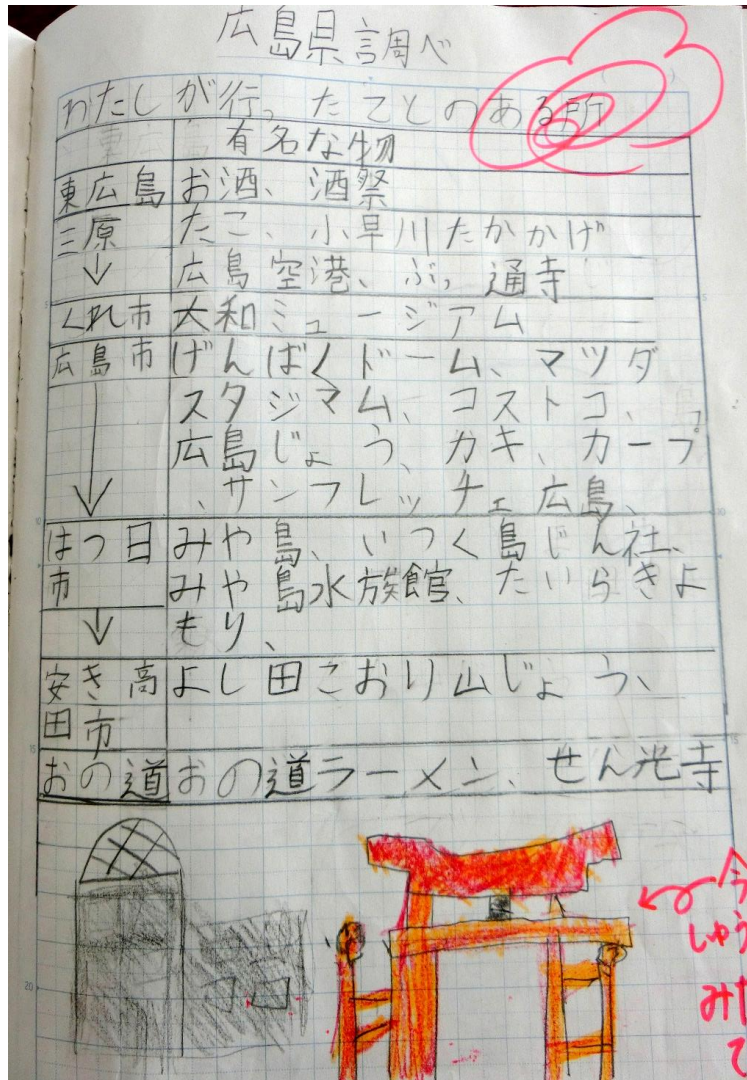 広島県調べ
わたしが行ったことのある所
有名な物
東広島 お酒、酒祭
三原 たこ、小早川たかかげ
↓ 広島空港、ぶっ通寺
くれ市 大和ミュージアム
広島市 げんばくドーム、マツダ
スタジアム、コストコ、
広島じょう、カキ、カープ
、サンフレッチェ広島、
はつ日 みや島、いつく島じん社、
市 みや島水族館、たいらきよ
↓ もり、
安き高 よし田こおり山じょう、
田市
おの道 おの道ラーメン、せん光寺
今
しゅう
み
て